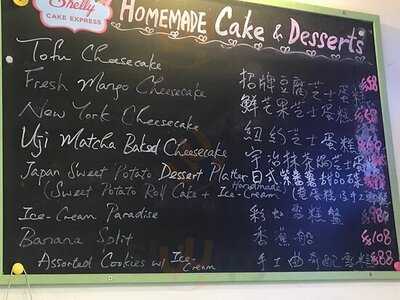 Shelly
CAKE EXPRESS
HOMEMADE Cake & Desserts
Tofu Cheesecake 招牌豆腐芝士蛋糕
Fresh Mango Cheesecake 鮮芒果芝士蛋糕
New York Cheesecake 紐約芝士蛋糕
Uji Matcha Baked Cheesecake 宇治抹茶焗芝士蛋糕
Japan Sweet Potato Dessert Platter 日式紫薯甜品
(Sweet Potato Roll Cake + Homemade Ice-Cream)
Ice-Cream Paradise 彩虹雪糕盤
Banana Split 香蕉船
Assorted Cookies w/ Ice-Cream 手工曲奇配雪糕